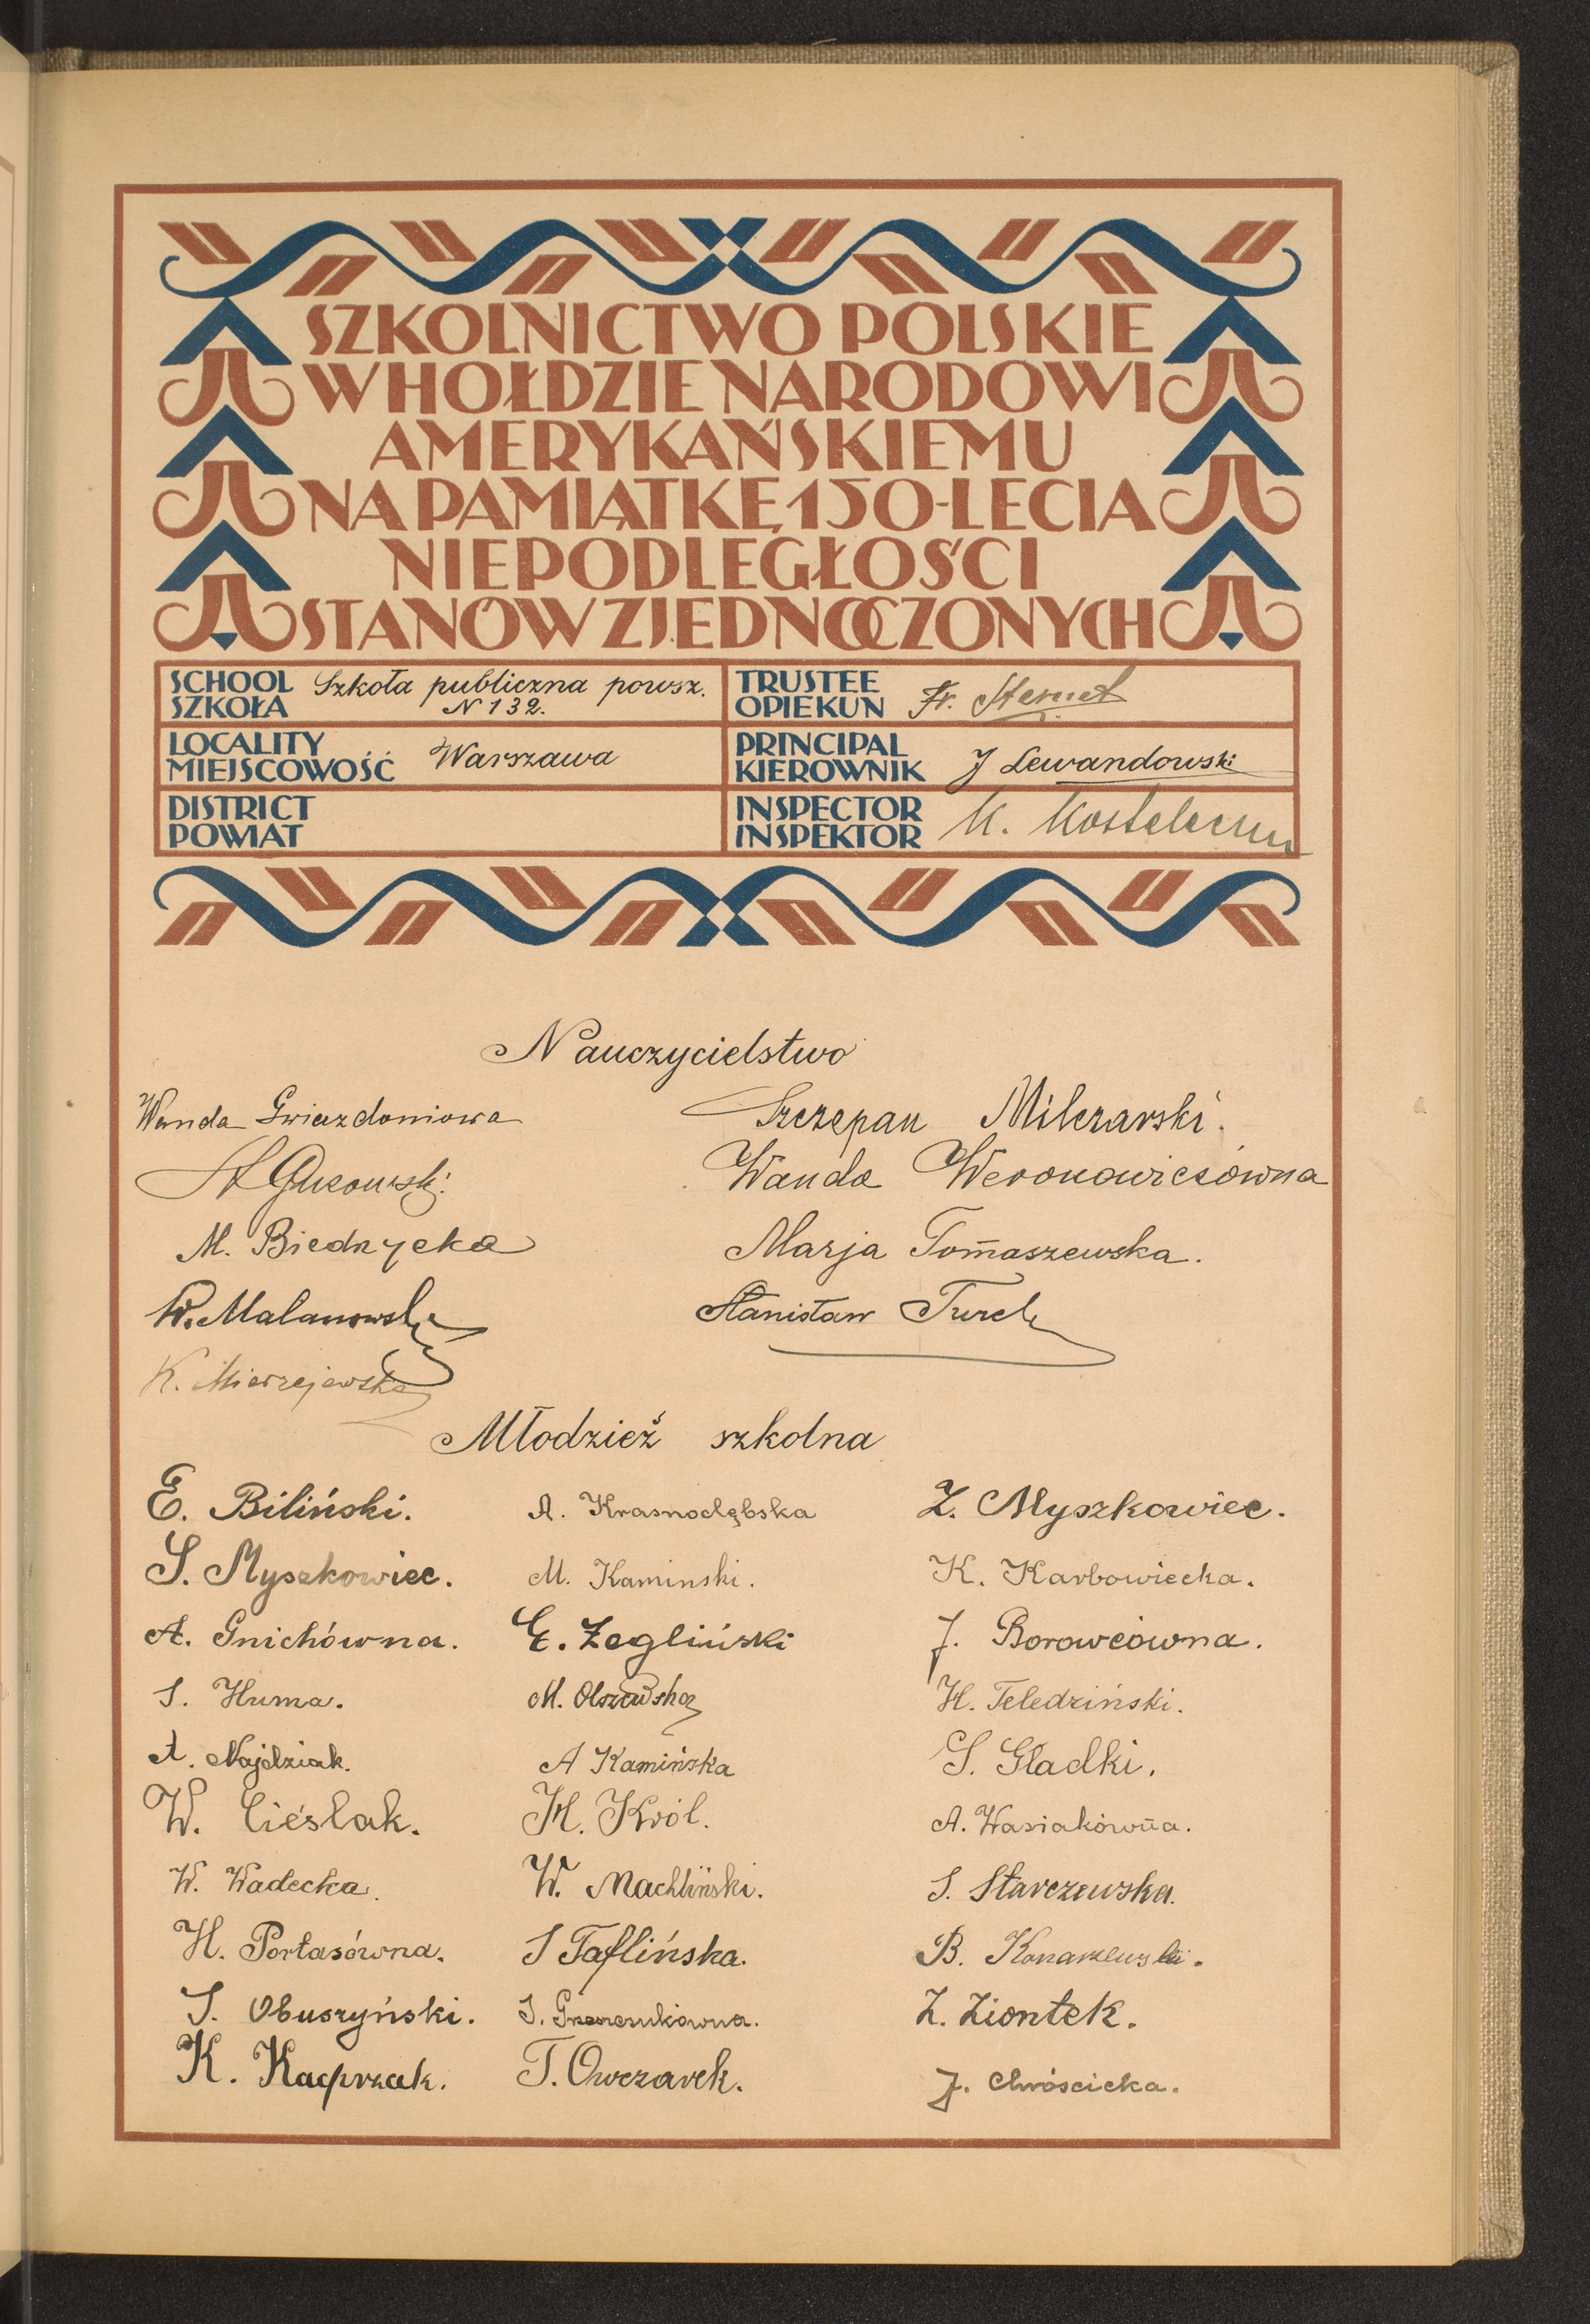 SZKOLNICTWO POLSKIE
W HOŁDZIE NARODOWI
AMERYKAŃSKIEMU
NA PAMIĄTKĘ 150-LECIA
NIEPODLEGŁOŚCI
STANÓW ZJEDNOCZONYCH
SCHOOL
SZKOŁA
Szkoła publiczna powsz.
N 132.
TRUSTEE
OPIEKUN
Fr.
LOCALITY
MIEJSCOWOŚĆ
Warszawa
PRINCIPAL
KIEROWNIK
J Lewandowski
DISTRICT
POWIAT
INSPECTOR
INSPEKTOR
K.
Nauczycielstwo
Wanda Gwiazdoniowa
Szczepan Milczarski.
Wanda Weronowiczówna
M. Biedrzycka
Marja Tomaszewska.
W. Malanowski
Stanisław Turek
K. Mierzejewska
Młodzież szkolna
E. Biliński.
A. Krasnodębska
Z. Myszkowiec.
S. Myszkowiec.
M. Kaminski.
K. Karbowiecka.
A. Gnichówna.
E. Żegliński
J. Borowcówna.
S. Huma.
M. Olszewska
H. Teledziński.
A. Najdziak.
A Kamińska
S. Gładki.
W. Cieślak.
H. Król.
A. Wasiakówna.
W. Wadecka.
W. Machliński.
S. Starczewska.
H. Portasówna.
S Taflińska.
B. Konarzewski.
S. Obuszyński.
S.
Z. Ziontek.
K. Kacprzak.
T. Owczarek.
J. Chróścicka.